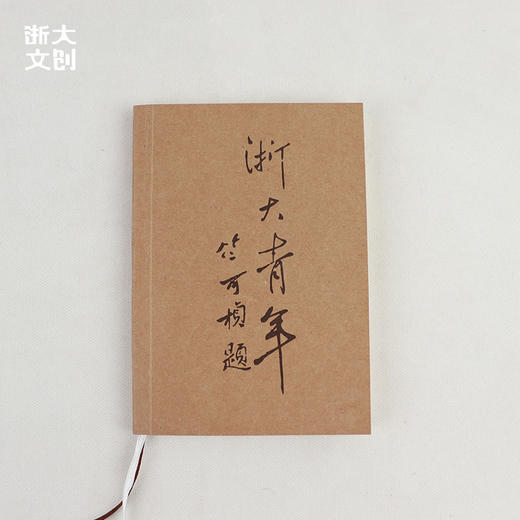 浙大
文创
浙大青年
竺可桢题